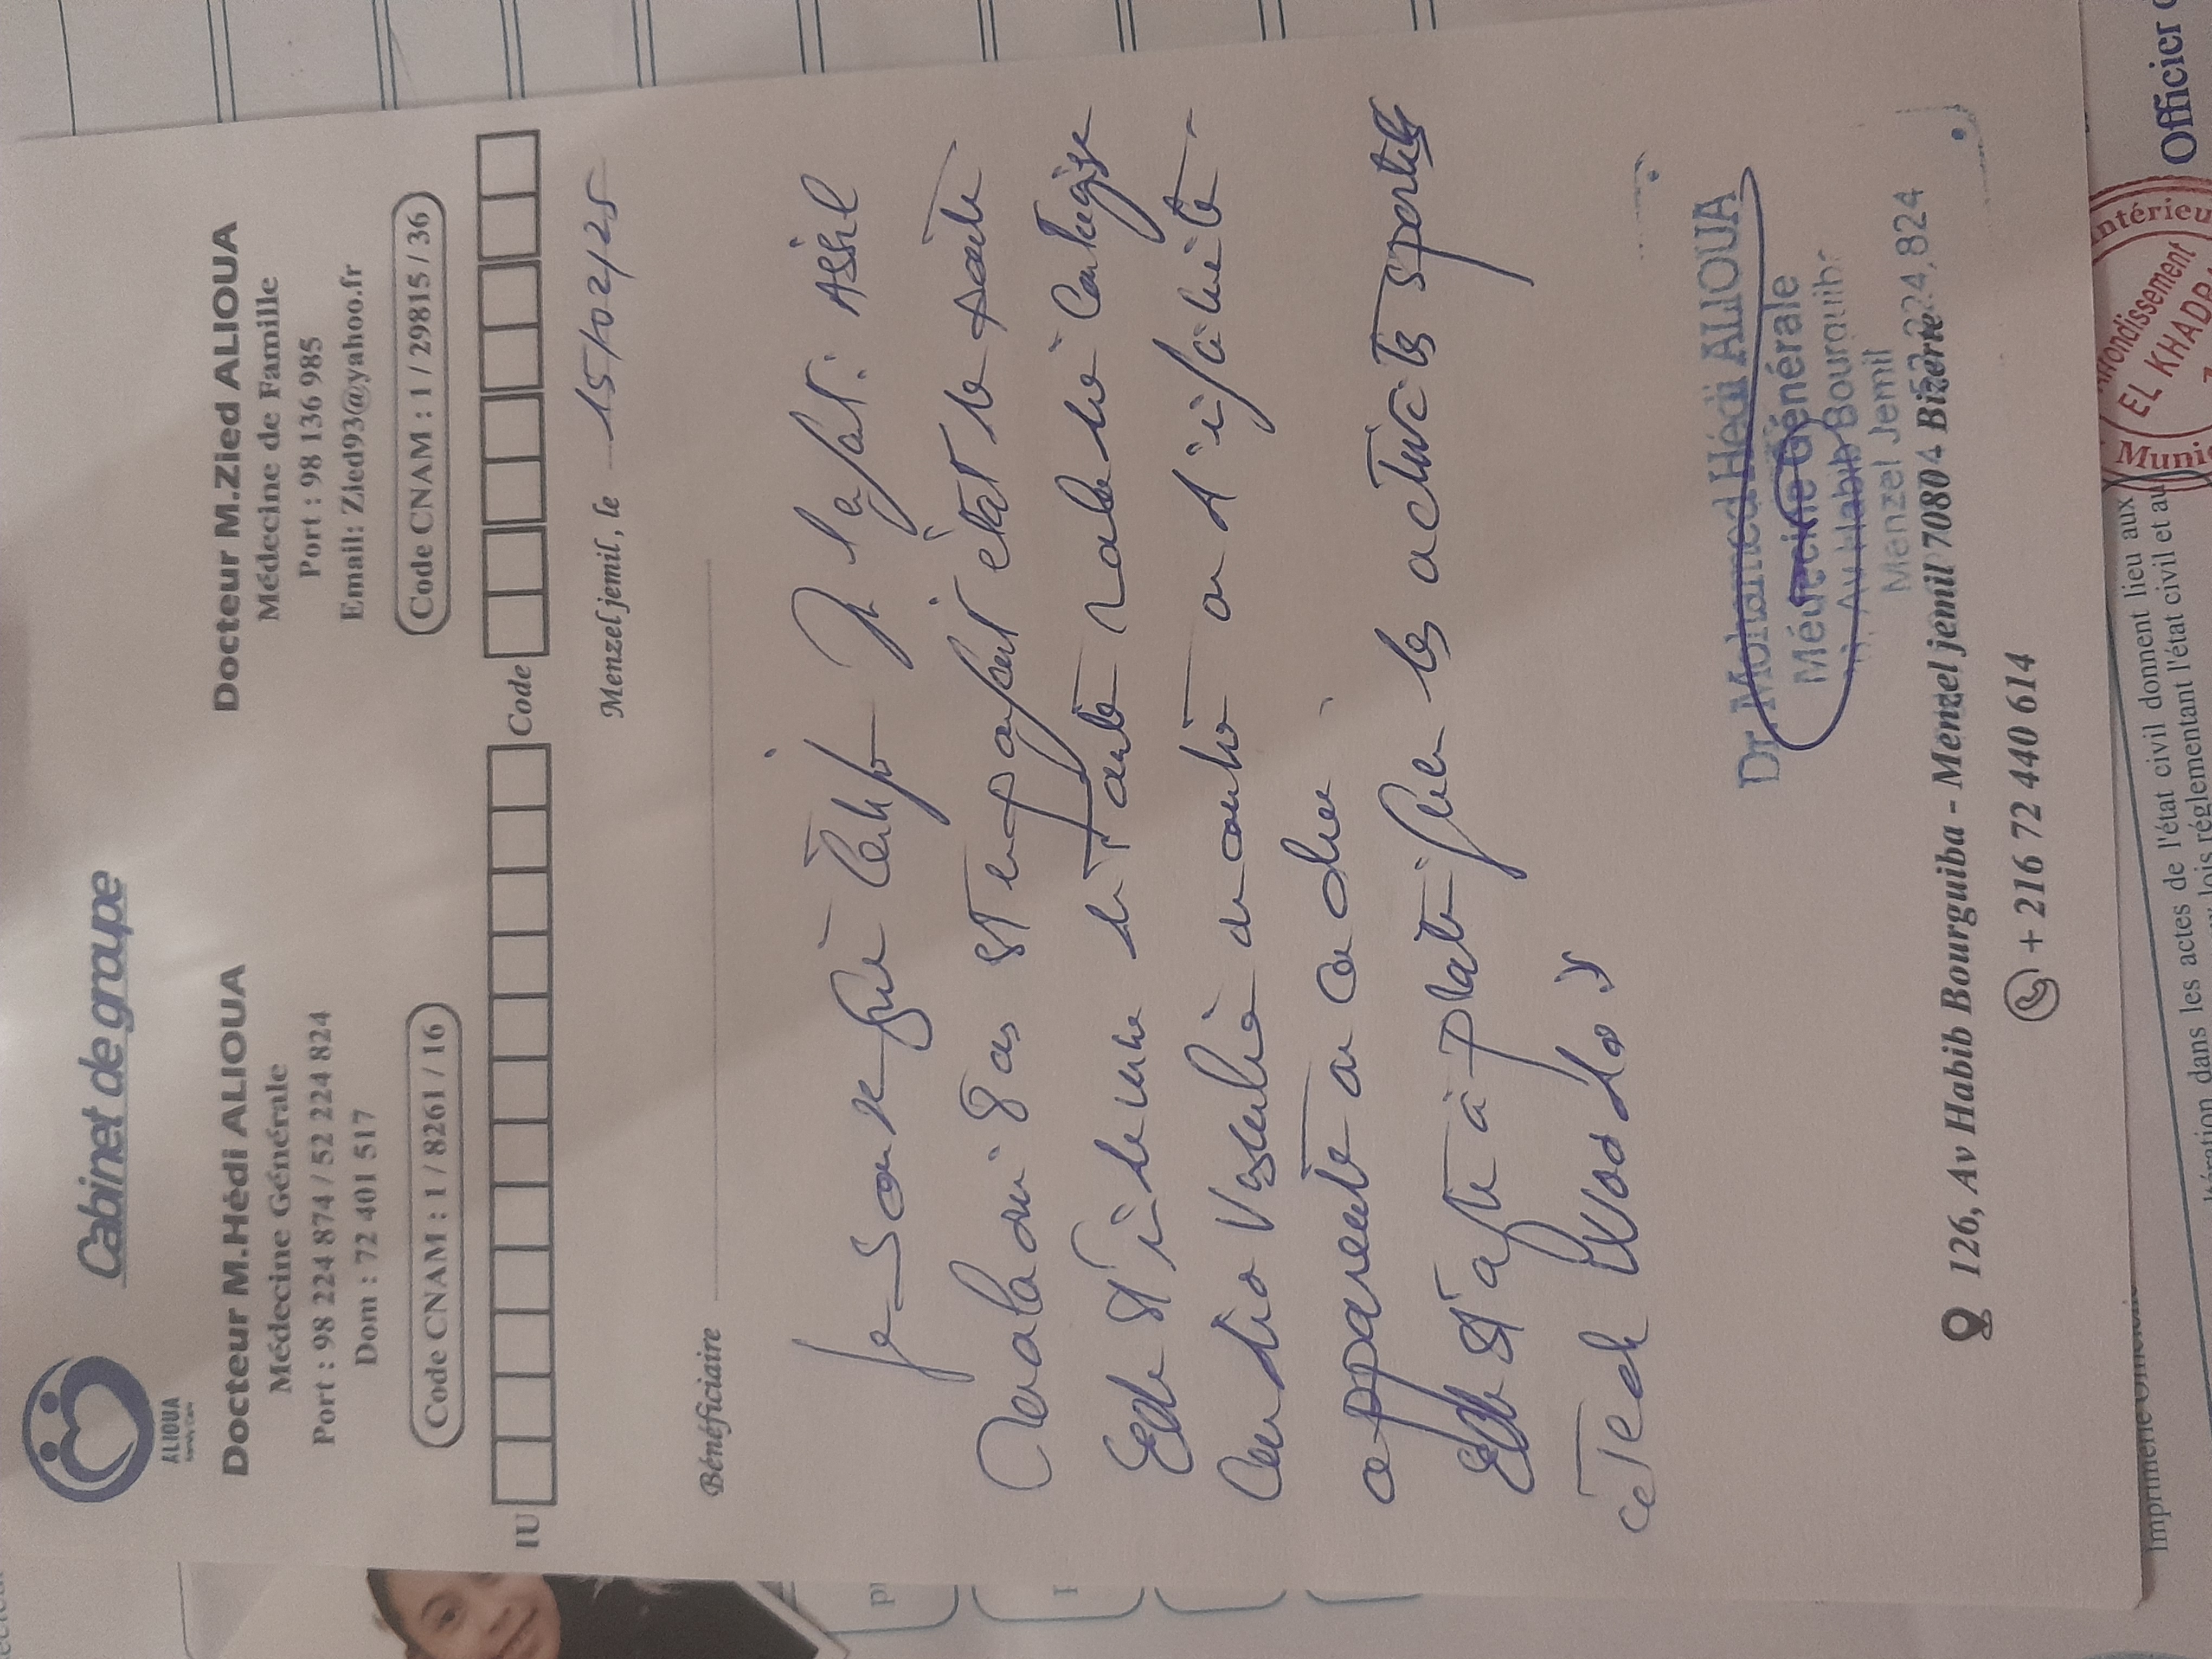 Cabinet de groupe
ALIOUA
Docteur M.Hédi ALIOUA
Médecine Générale
Port : 98 224 874 / 52 224 824
Dom : 72 401 517
Code CNAM : 1 / 8261 / 16
Docteur M.Zied ALIOUA
Médecine de Famille
Port : 98 136 985
Email: Zied93@yahoo.fr
Code CNAM : 1 / 29815 / 36
IU
Code
Menzel jemil, le 15/02/25
Bénéficiaire
Je soussigné certifie l'enfant : Assil
est en parfait état de santé
Elle est indemne de toute maladie contagieuse
Cardio Vasculaire ou d'infirmité
apparente ou cachée
Elle est apte à pratiquer les activités sportives
Dr Mohamed Hédi ALIOUA
Médecine Générale
Av Habib Bourguiba
Menzel Jemil
52.224.824
126, Av Habib Bourguiba - Menzel jemil 7080 Bizerte
+ 216 72 440 614
Imprimerie Officielle
dans les actes de l'état civil donnent lieu aux
lois réglementant l'état civil et au
Officier
Intérieur
Arrondissement
EL KHADRA